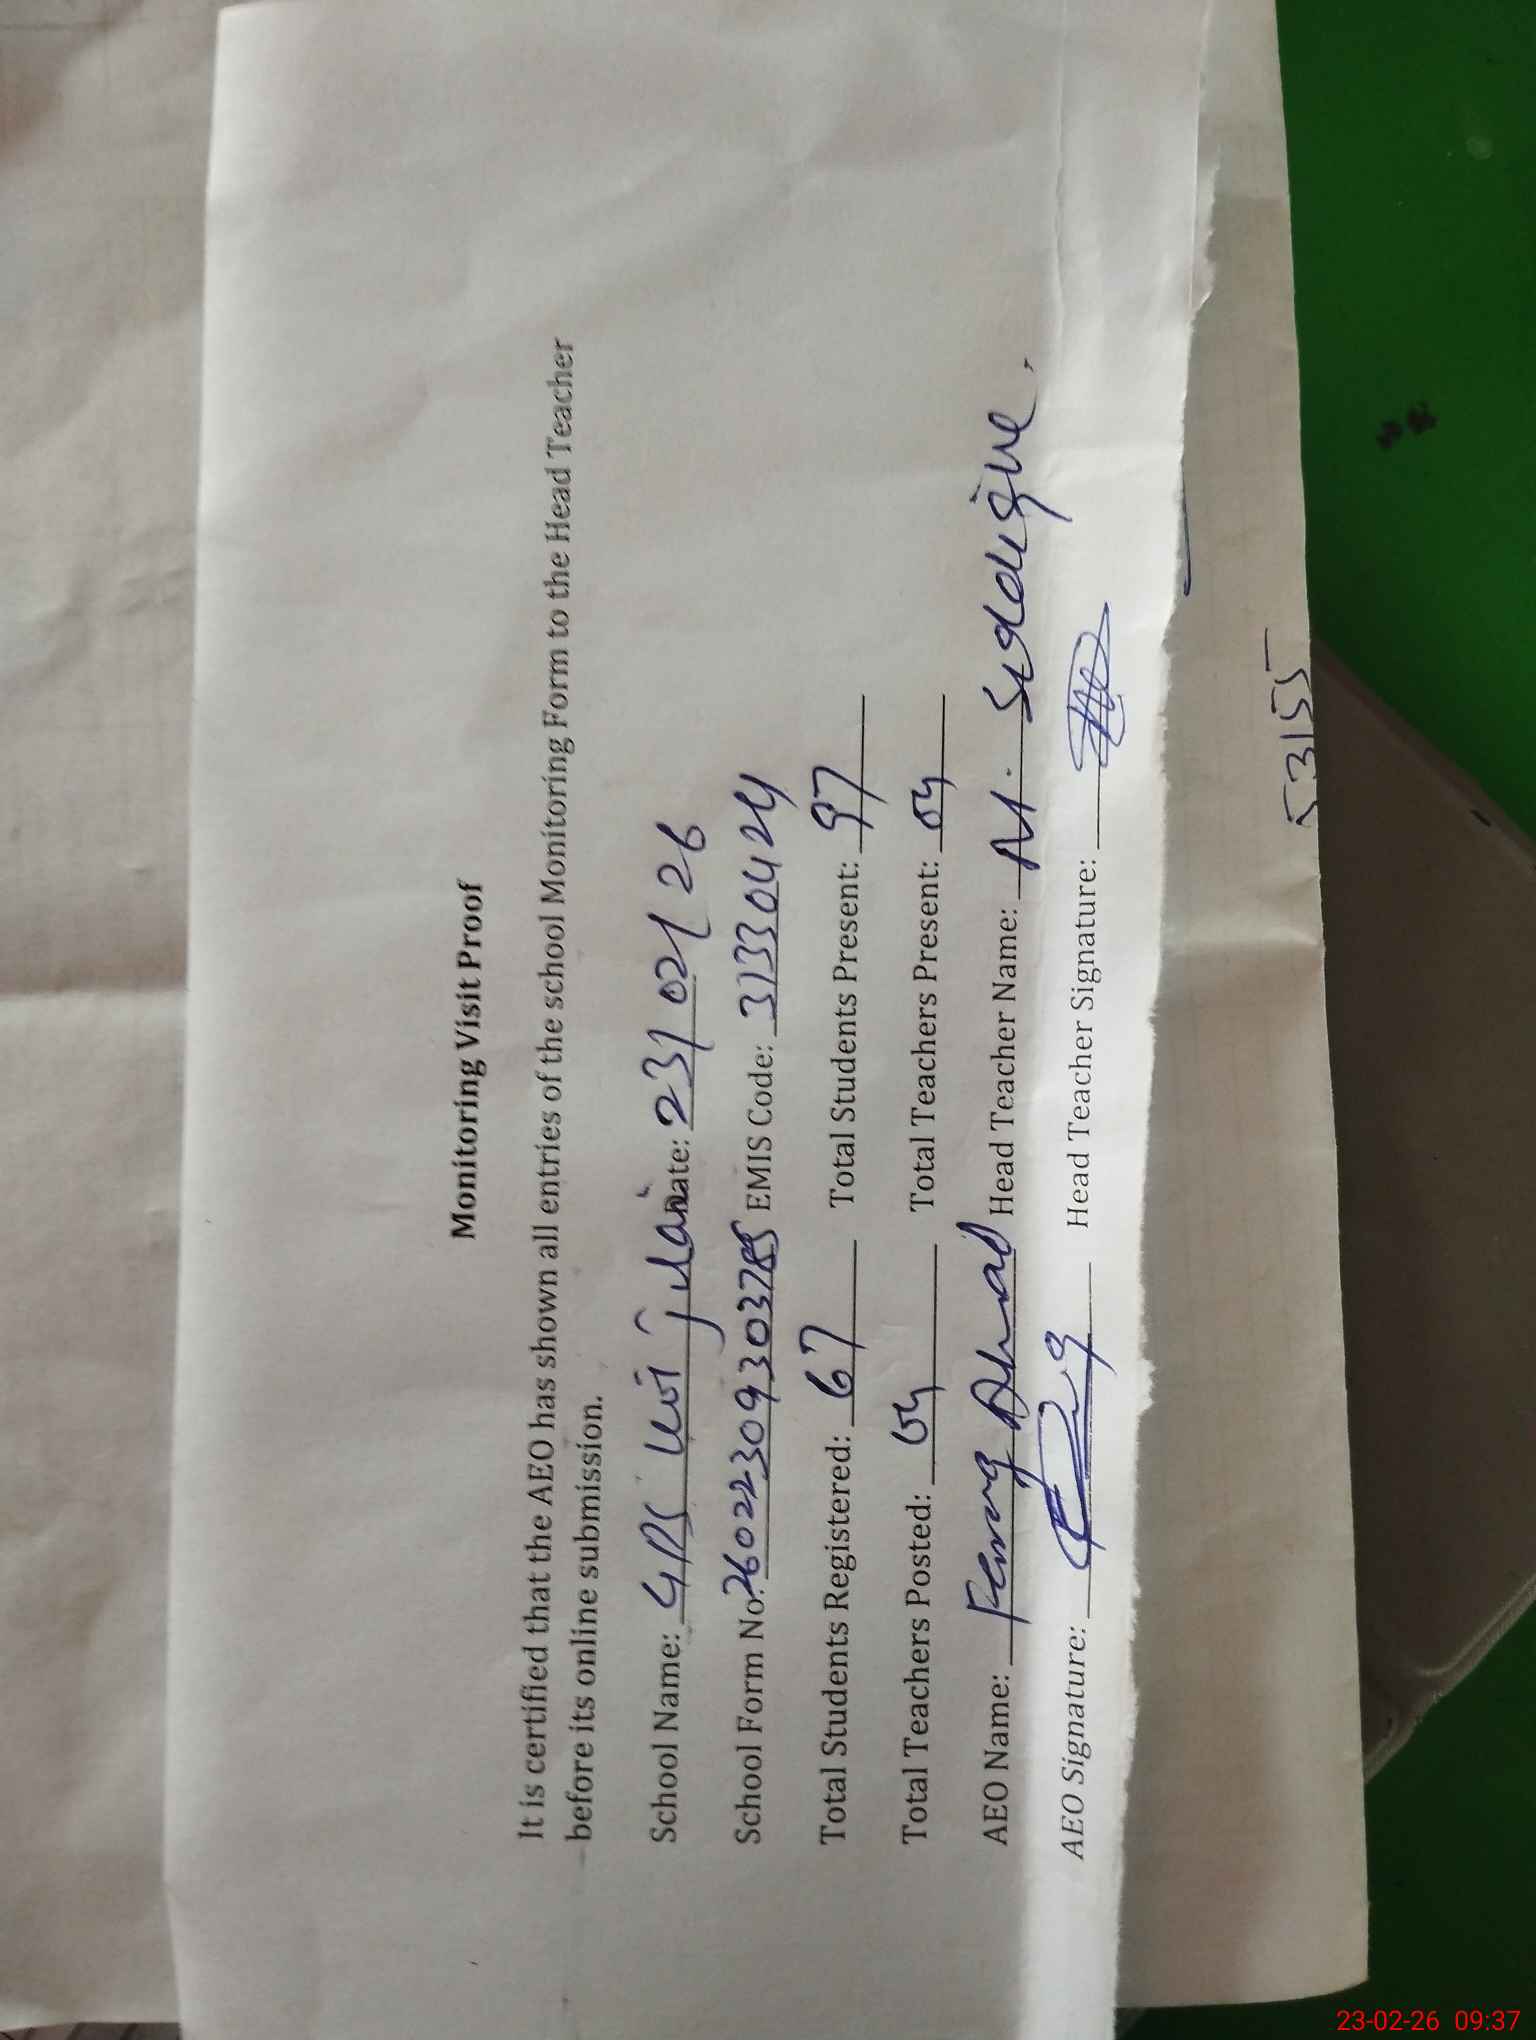 Monitoring Visit Proof
It is certified that the AEO has shown all entries of the school Monitoring Form to the Head Teacher
before its online submission.
School Name: GPS Date: 23/02/26
School Form No: 260223093037 EMIS Code: 31330424
Total Students Registered: 67 Total Students Present: 97
Total Teachers Posted: 04 Total Teachers Present: 04
AEO Name: Ahmad Head Teacher Name: M. Siddique.
AEO Signature: Head Teacher Signature:
53155
23-02-26 09:37